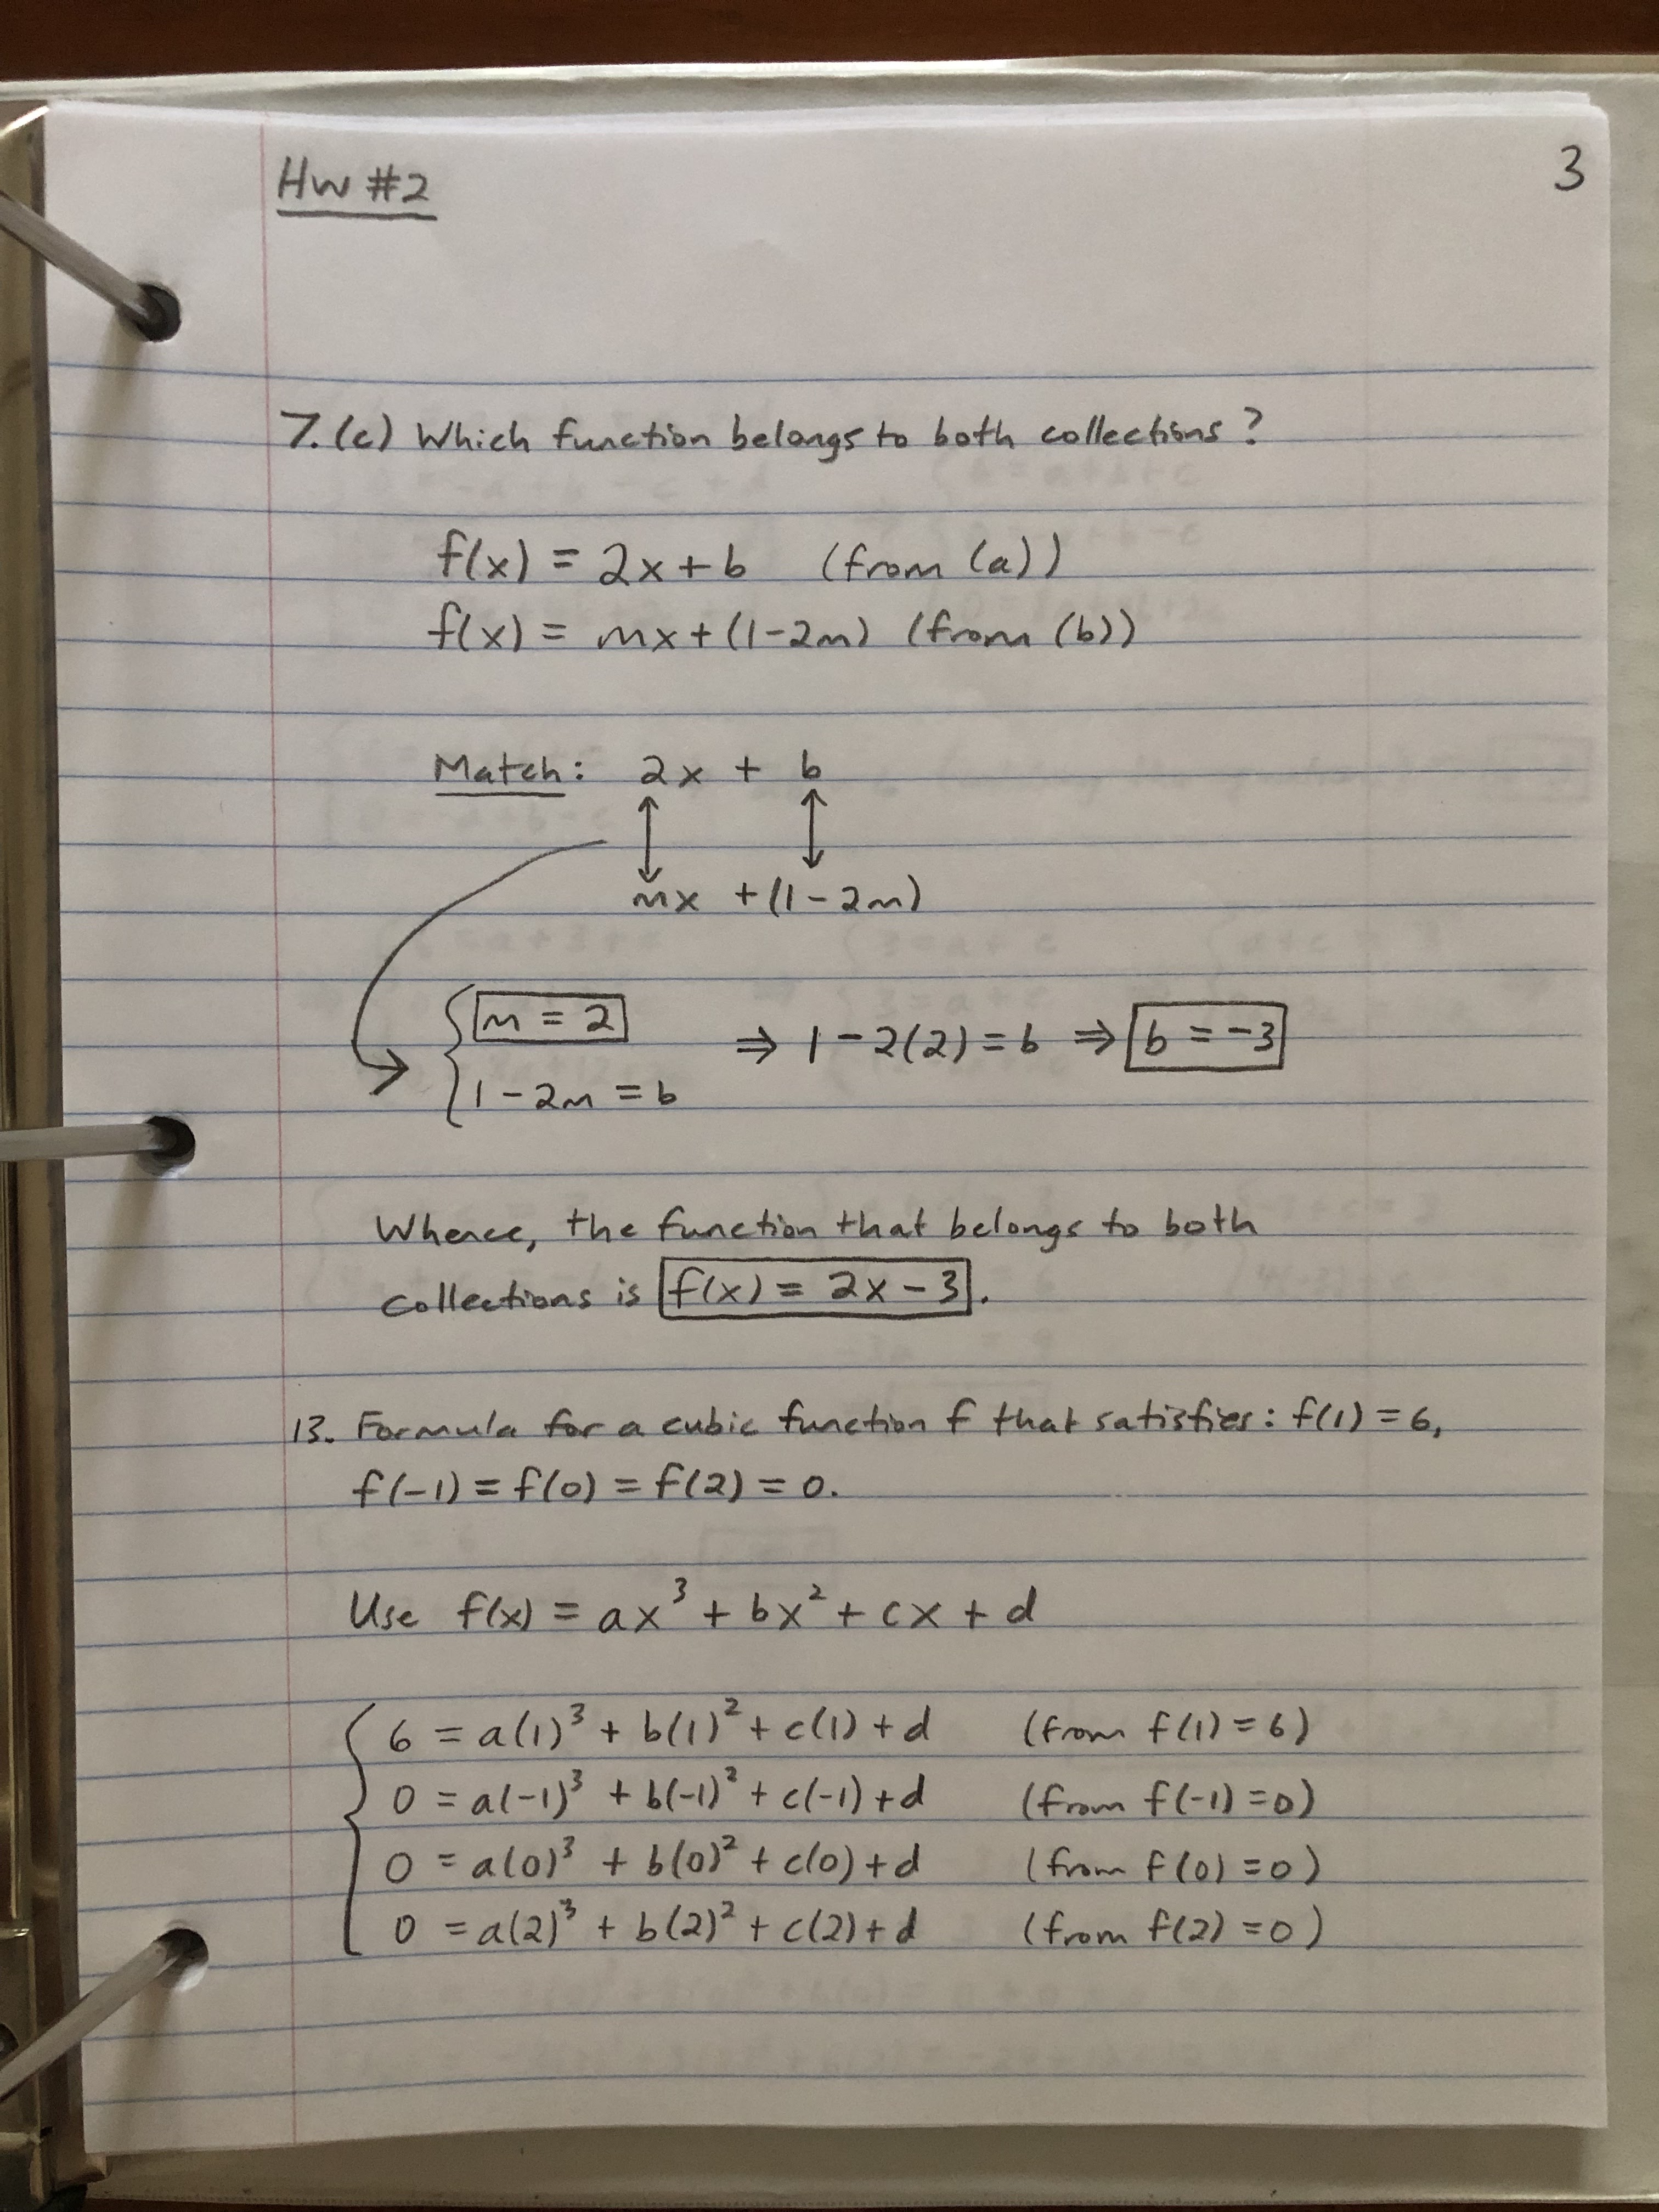 HW #2
3
7. (c) Which function belongs to both collections?
f(x) = 2x + b (from (a))
f(x) = mx + (1-2m) (from (b))
Match: 2x + b
mx + (1-2m)
m = 2
⇒ 1-2(2) = b ⇒ b = -3
1-2m = b
Whence, the function that belongs to both
collections is f(x) = 2x-3.
13. Formula for a cubic function f that satisfies: f(1) = 6,
f(-1) = f(0) = f(2) = 0.
Use f(x) = ax³ + bx² + cx + d
6 = a(1)³ + b(1)² + c(1) + d (from f(1) = 6)
0 = a(-1)³ + b(-1)² + c(-1) + d (from f(-1) = 0)
0 = a(0)³ + b(0)² + c(0) + d (from f(0) = 0)
0 = a(2)³ + b(2)² + c(2) + d (from f(2) = 0)